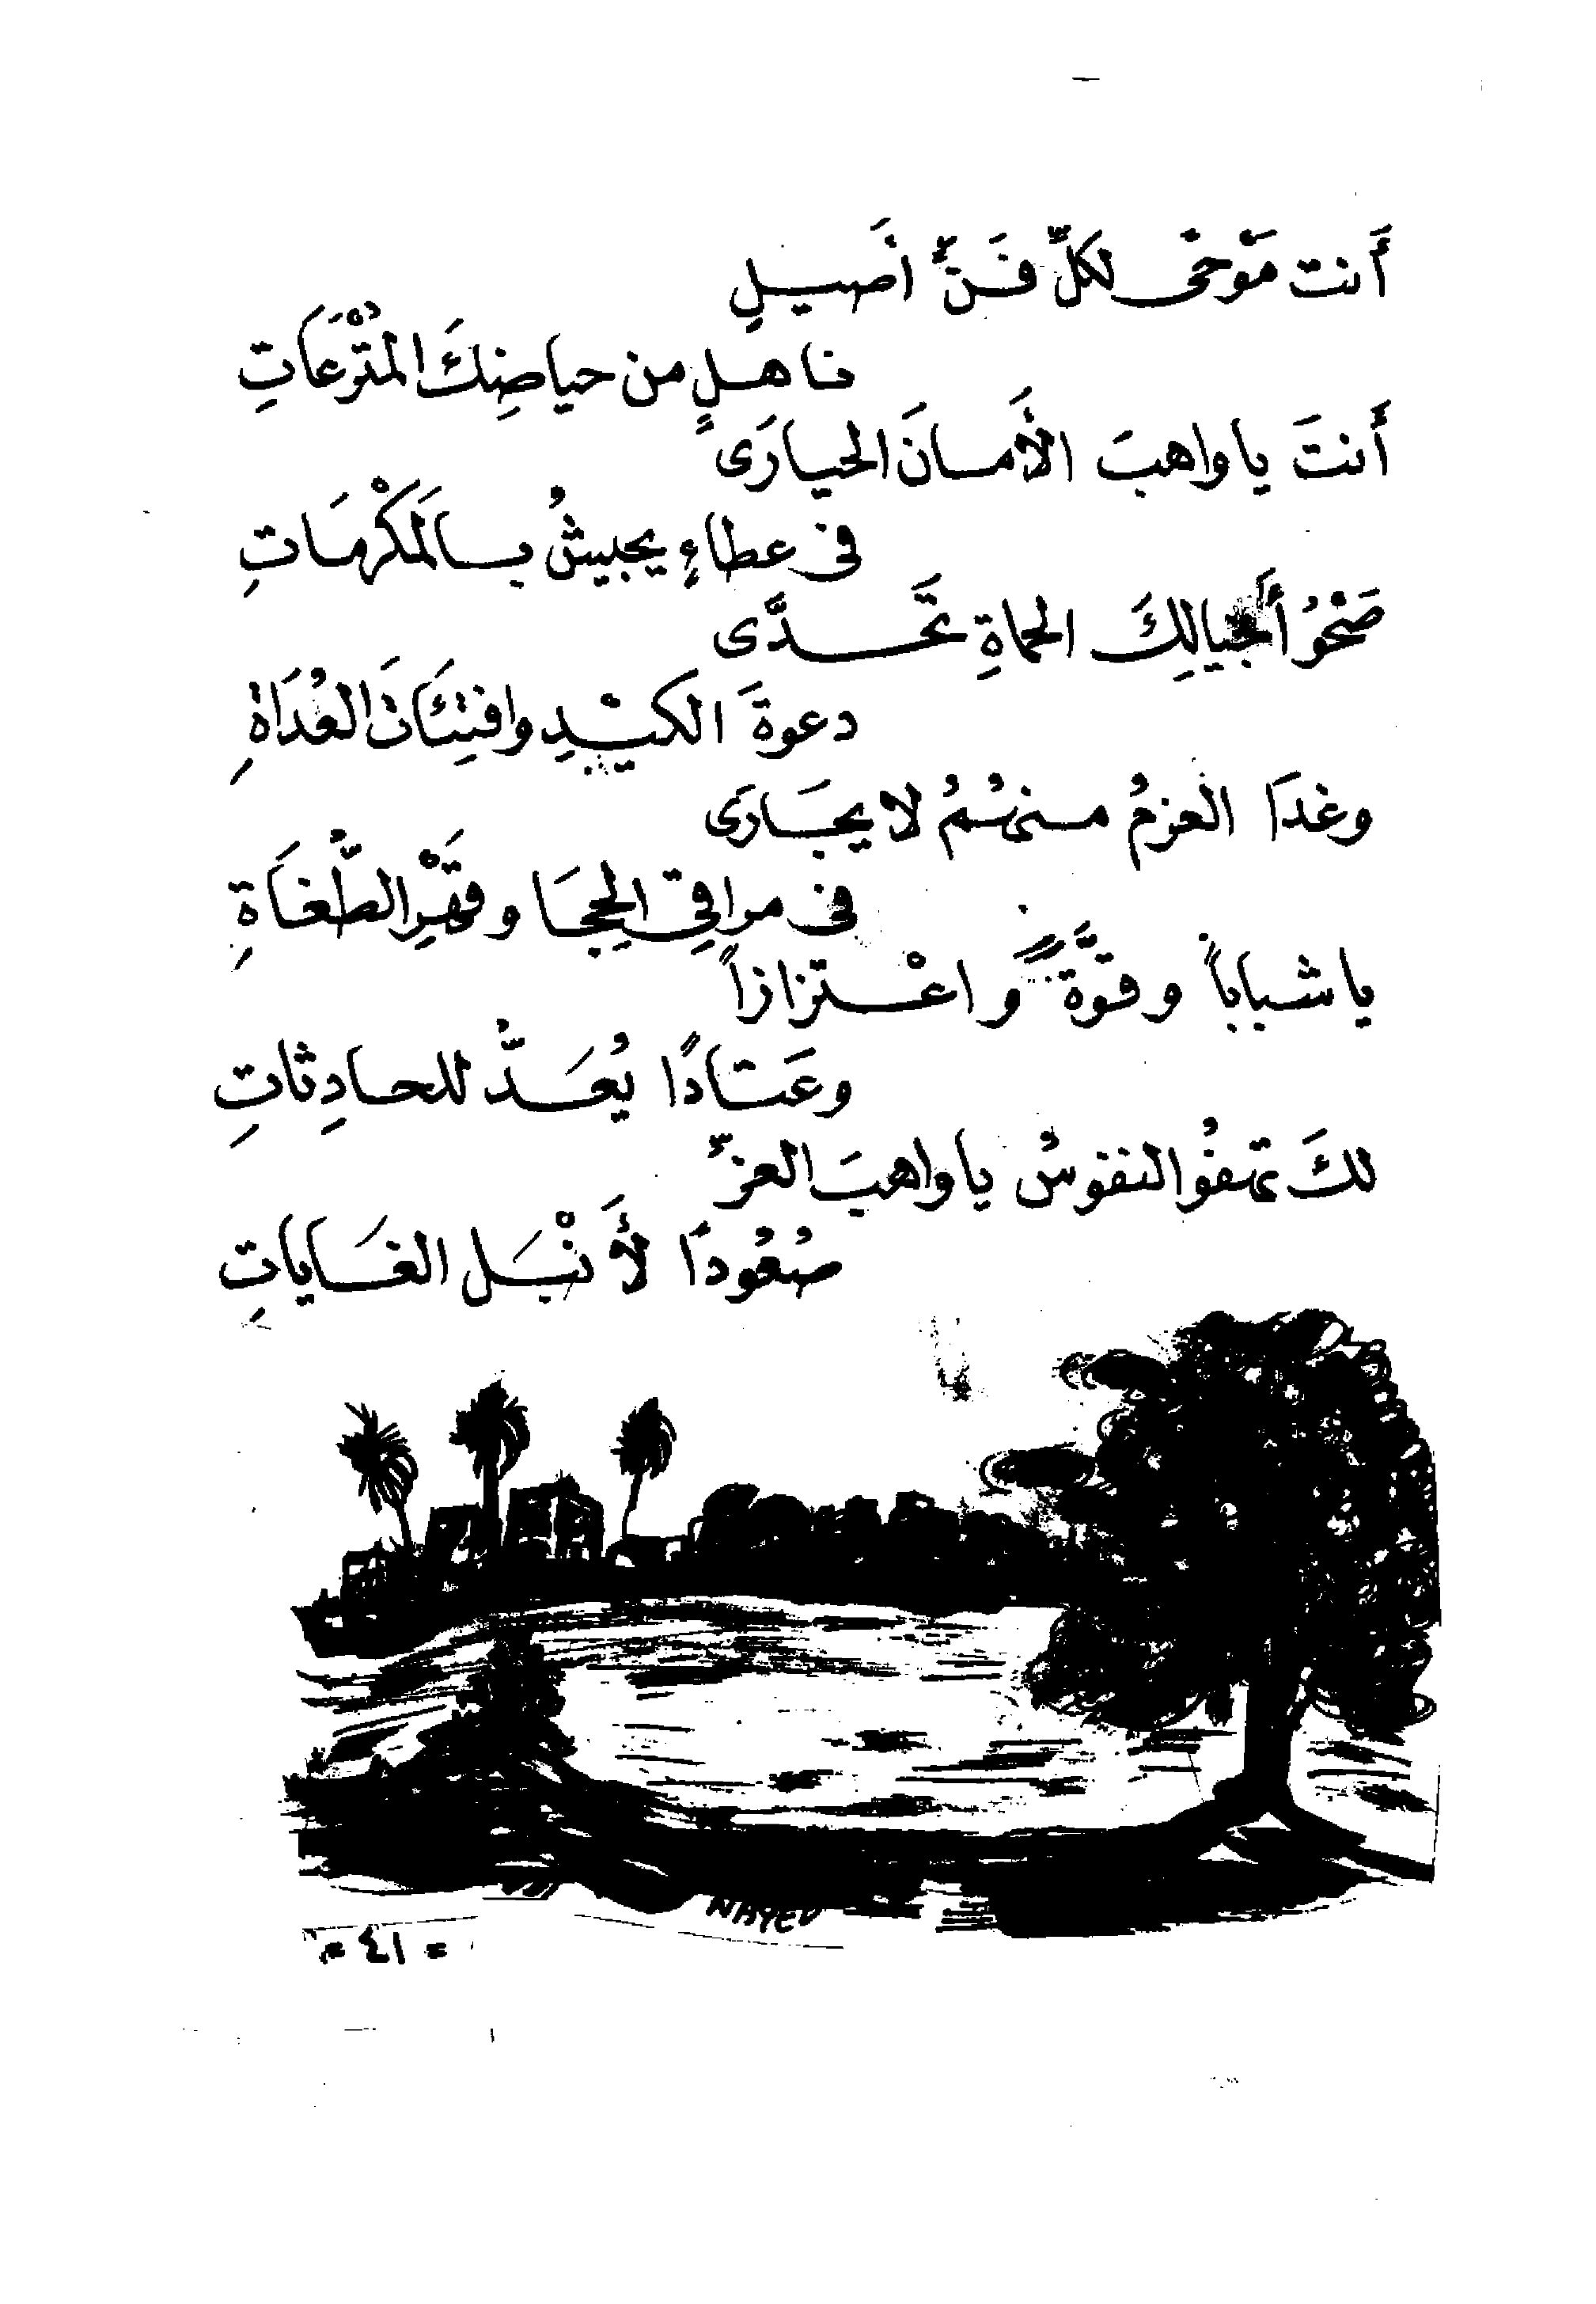 أنت مَوْحًى لكلِّ فَنٍّ أصَيلِ
ناهلٍ من حياضِكَ المُتْرَعَاتِ
أنتَ يا واهبَ الأَمانَ الحيارَى
فى عطاءٍ يجيشُ بالمَكْرُمَاتِ
صَحْوُ أَجيالِكَ الحماةِ تَحدَّى
دعوةَ الكيْدِ وافتِئَاتَ العُدَاةِ
وغدَا العزمُ منهُمُ لا يجَارَى
فى مراقِى الحِجَا وقَهْرِ الطُّغَاةِ
يا شباباً وقوَّةً واعْتزازاً
وعَتَادًا يُعَدُّ للحادِثاتِ
لكَ تهفُو النفوسُ يا واهبَ العزِّ
صُعُودًا لأَنْبَل الغَاياتِ
NAYED
= ٤١ =